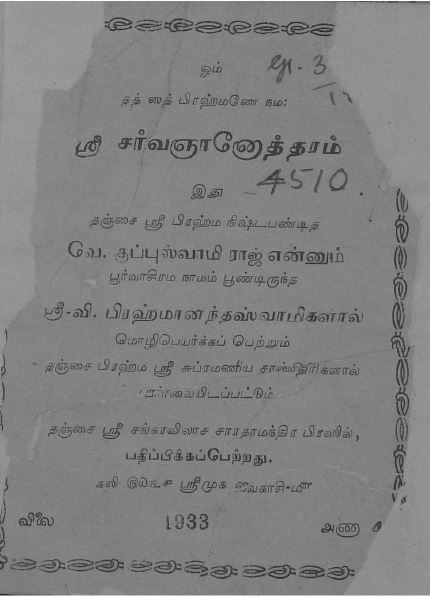 ஓம்
தத் ஸத் பிரஹ்மணே நம:
ஸ்ரீ சர்வஞானோத்தரம்
4510
இது
தஞ்சை ஸ்ரீ பிரஹ்ம நிஷ்டபண்டித
வே. குப்புஸ்வாமி ராஜ் என்னும்
பூர்வாசிரம நாமம் பூண்டிருந்த
ஸ்ரீ-வி. பிரஹ்மானந்தஸ்வாமிகளால்
மொழிபெயர்க்கப் பெற்றும்
தஞ்சை பிரஹ்ம ஸ்ரீ சுப்ரமணிய சாஸ்திரிகளால்
பார்வையிடப்பட்டும்
தஞ்சை ஸ்ரீ சங்கரவிலாச சாரதாமந்திர பிரஸில்,
பதிப்பிக்கப்பெற்றது.
கலி ஸ்ரீமுக வைகாசி-மீ
விலை 1933 அணா